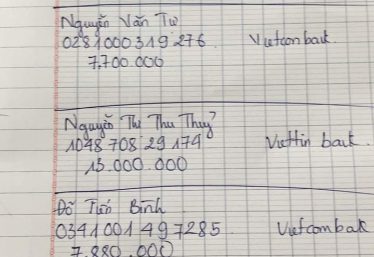 Nguyễn Văn Tư
0281000319276 Vietcombank.
7.700.000
Nguyễn Thị Thu Thuỷ
1048 708 29 174 Viettin bank.
13.000.000
Đỗ Tiến Bình
0341001497285 Vietcombak
7.880.000